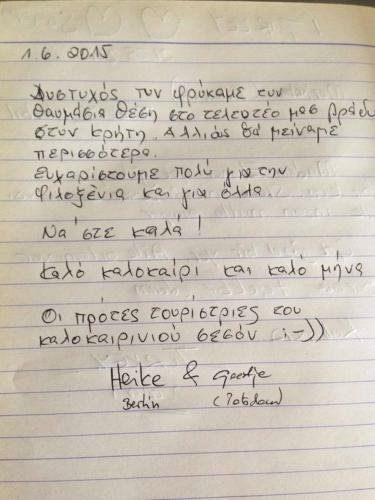 1.6. 2015
Δυστυχός τυν φρύκαμε τυν
θαυμάσια θέση στο τελευτέο μας βράδυ
στυν κρήτη. Αλλιώς θα μείναμε
περισσότερα.
Ευχαρίστουμε πολύ για την
φιλοξένια και για όλλα.
Να 'στε καλά!
καλό καλοκαίρι και καλό μήνα
Οι πρότες τουρίστριες του
καλοκαιρινιού σεσόν ;-))
Heike & Geertje
Berlin (Potsdam)